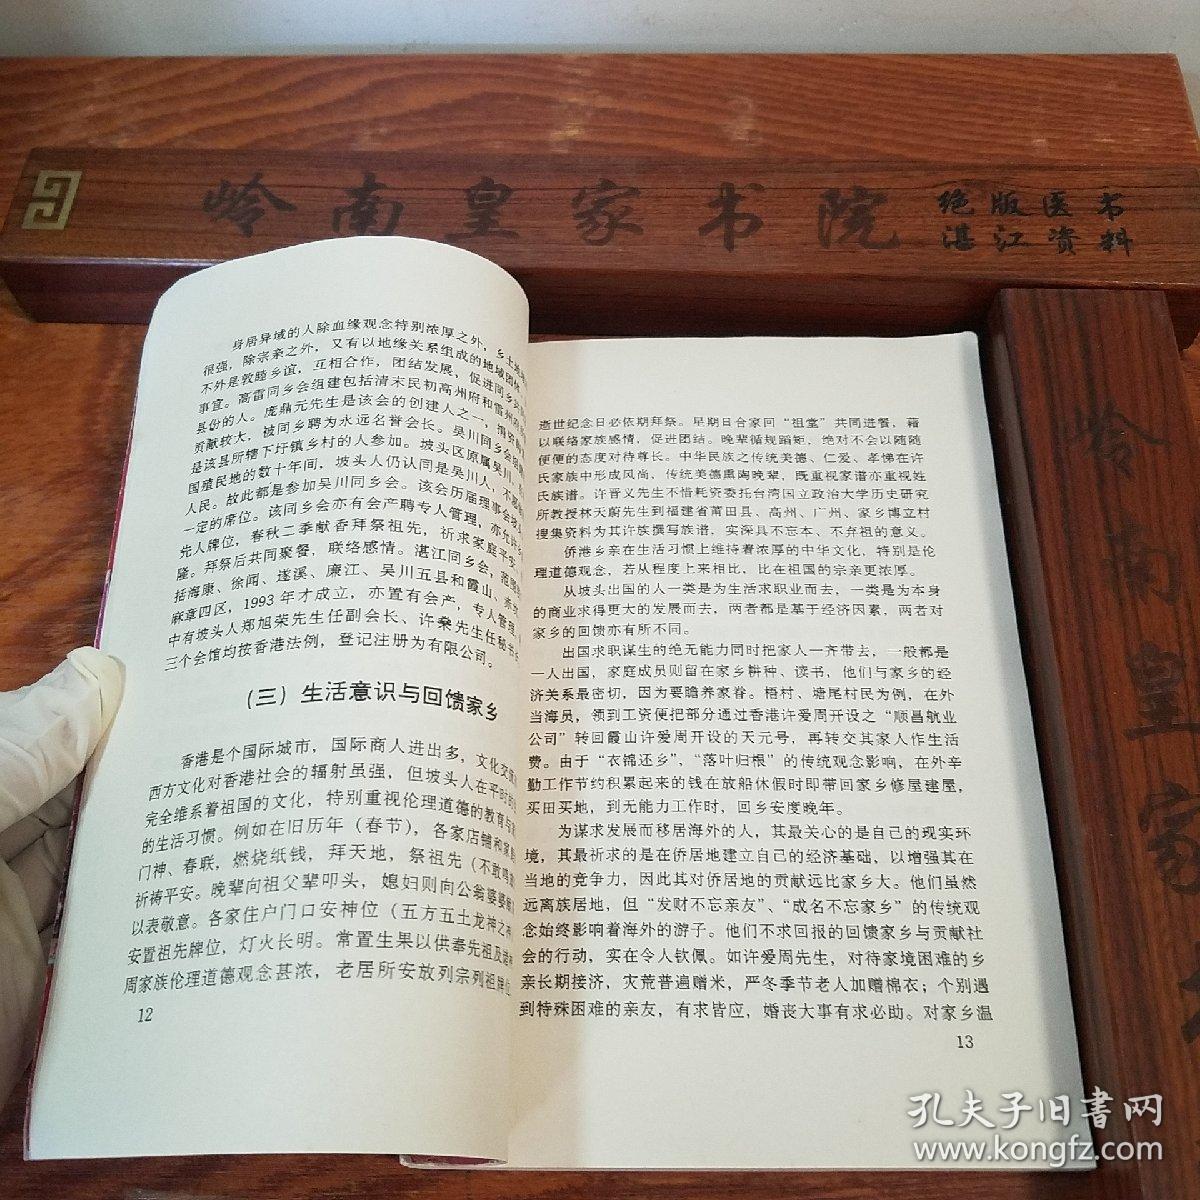 岭南皇家书院
绝版医书
湛江资料
身居异域的人除血缘观念特别浓厚之外，乡土
很强，除宗亲之外，又有以地缘关系组成的地域团
不外是敦睦乡谊，互相合作，团结发展，促进同乡
事宜。高雷同乡会组建包括清末民初高州府和雷州府
县份的人。庞鼎元先生是该会的创建人之一，捐
贡献较大，被同乡聘为永远名誉会长。吴川同乡会
是该县所辖下圩镇乡村的人参加。坡头区原属吴川，
国殖民地的数十年间，坡头人仍认同是吴川人，不
人民。故此都是参加吴川同乡会。该会历届理事会
一定的席位。该同乡会亦有会产聘专人管理，亦
先人牌位，春秋二季献香拜祭祖先，祈求家庭平安，
隆。拜祭后共同聚餐，联络感情。湛江同乡会，范围
括海康、徐闻、遂溪、廉江、吴川五县和霞山、赤坎
麻章四区，1993年才成立，亦置有会产，专人管理，
中有坡头人郑旭荣先生任副会长、许桑先生任秘书
三个会馆均按香港法例，登记注册为有限公司。
（三）生活意识与回馈家乡
香港是个国际城市，国际商人进出多，文化交
西方文化对香港社会的辐射虽强，但坡头人在平时的
完全维系着祖国的文化，特别重视伦理道德的教育与
的生活习惯。例如在旧历年（春节），各家店铺和家
门神、春联，燃烧纸钱，拜天地，祭祖先（不敢鸣
祈祷平安。晚辈向祖父辈叩头，媳妇则向公翁婆婆
以表敬意。各家住户门口安神位（五方五土龙神之神
安置祖先牌位，灯火长明。常置生果以供奉先祖及诸神
周家族伦理道德观念甚浓，老居所安放列宗列祖牌位
12
逝世纪念日必依期拜祭。早期日合家回“祖堂”共同进餐，藉
以联络家族感情，促进团结。晚辈循规蹈矩，绝对不会以随随
便便的态度对待尊长。中华民族之传统美德、仁爱、孝悌在许
氏家族中形成风尚，传统美德熏陶晚辈，既重视家谱亦重视姓
氏族谱。许晋义先生不惜耗资委托台湾国立政治大学历史研究
所教授林天蔚先生到福建省莆田县、高州、广州、家乡博立村
搜集资料为其许族撰写族谱，实深具不忘本、不弃祖的意义。
侨港乡亲在生活习惯上维持着浓厚的中华文化，特别是伦
理道德观念，若从程度上来相比，比在祖国的宗亲更浓厚。
从坡头出国的人一类是为生活求职业而去，一类是为本身
的商业求得更大的发展而去，两者都是基于经济因素，两者对
家乡的回馈亦有所不同。
出国求职谋生的绝无能力同时把家人一齐带去，一般都是
一人出国，家庭成员则留在家乡耕种、读书，他们与家乡的经
济关系最密切，因为要赡养家眷。梧村、塘尾村民为例，在外
当海员，领到工资便把部分通过香港许爱周开设之“顺昌航业
公司”转回霞山许爱周开设的天元号，再转交其家人作生活
费。由于“衣锦还乡”、“落叶归根”的传统观念影响，在外辛
勤工作节约积累起来的钱在放船休假时即带回家乡修屋建屋，
买田买地，到无能力工作时，回乡安度晚年。
为谋求发展而移居海外的人，其最关心的是自己的现实环
境，其最祈求的是在侨居地建立自己的经济基础，以增强其在
当地的竞争力，因此其对侨居地的贡献远比家乡大。他们虽然
远离族居地，但“发财不忘亲友”、“成名不忘家乡”的传统观
念始终影响着海外的游子。他们不求回报的回馈家乡与贡献社
会的行动，实在令人钦佩。如许爱周先生，对待家境困难的乡
亲长期接济，灾荒普遍赠米，严冬季节老人加赠棉衣；个别遇
到特殊困难的亲友，有求皆应，婚丧大事有求必助。对家乡温
13
岭南皇家
孔夫子旧书网
www.kongfz.com